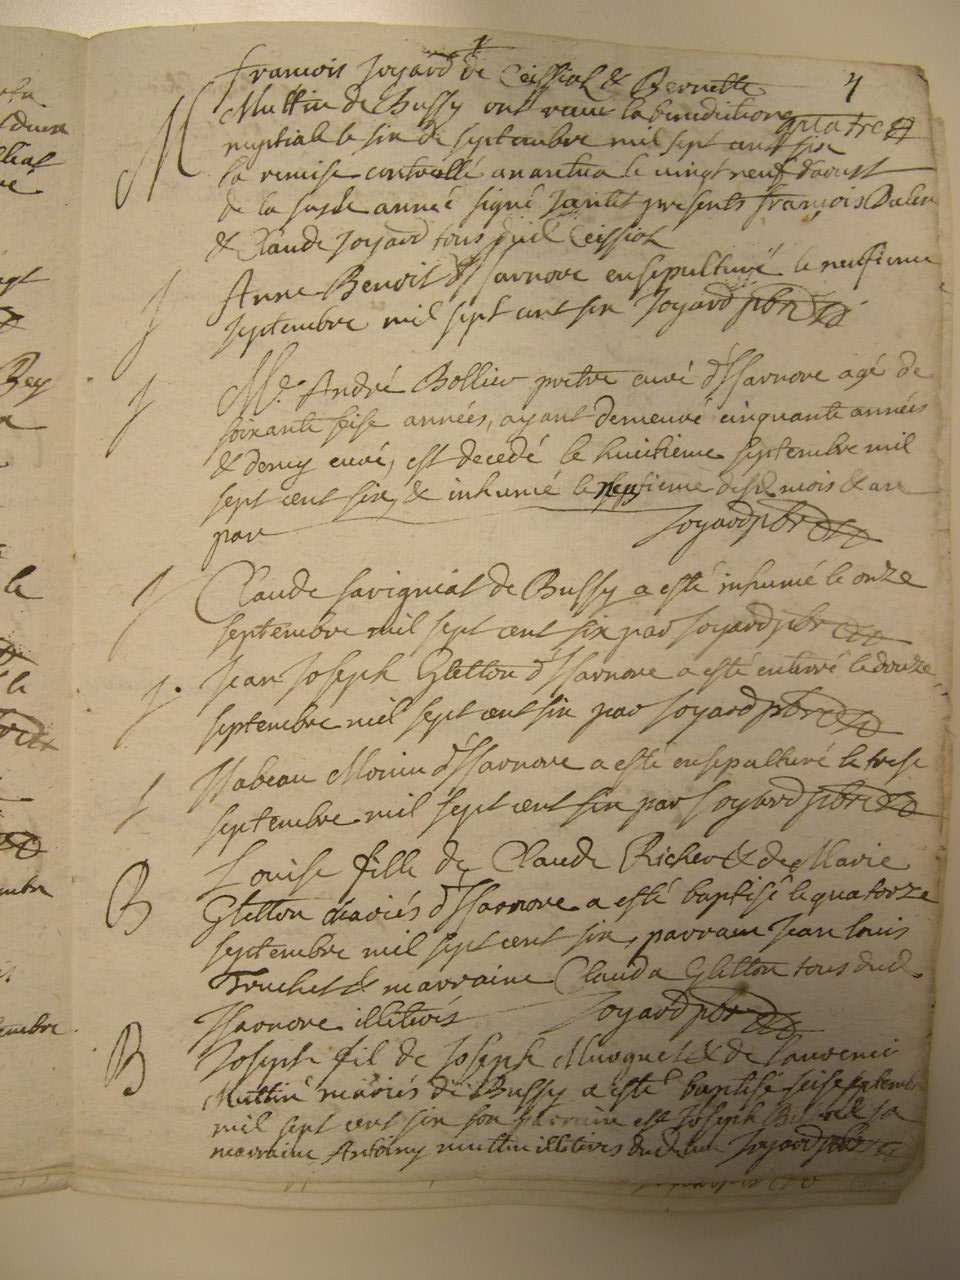 4
quatre
François Joyard de Ceissiat & Pernette
M Muttin de Bussy ont receu la benediction
nuptiale le six de septembre mil sept cent six
la remise controllé a nantua le vingt neuf d'aoust
de la susde année signé Jantet presents françois
& Claude Joyard tous dud Ceissiat
S Anne Benoit d'Isarnore ensepulturé le neufieme
septembre mil sept cent six Joyard pbre
S Mre André Bollier prêtre curé d'Isarnore agé de
soixante seise années, ayant demeuré cinquante années
& demy curé, est decedé le huitieme septembre mil
sept cent six, & inhumé le neufieme desd mois & an
par Joyard pbre
S Claude savigniat de Bussy a esté inhumé le onze
septembre mil sept cent six par Joyard pbre
S Jean Joseph Gletton d'Isarnore a esté enterré le douze
septembre mil sept cent six par Joyard pbre
S Isabeau Monin d'Isarnore a esté ensepulturé le trese
septembre mil sept cent six par Joyard pbre
B Louise fille de Claude Richer & de Marie
Gletton mariés d'Isarnore a esté baptisé le quatorze
septembre mil sept cent six, parrain Jean louis
Truchet & marraine Clauda Gletton tous dud
Isarnore illiterés Joyard pbre
B Joseph fil de Joseph Muoquet & de
Muttin mariés de Bussy a esté baptisé seise septembre
mil sept cent six son parrain est Joseph & sa
marraine Antoiny muttin illiterés dud lieu Joyard pbre